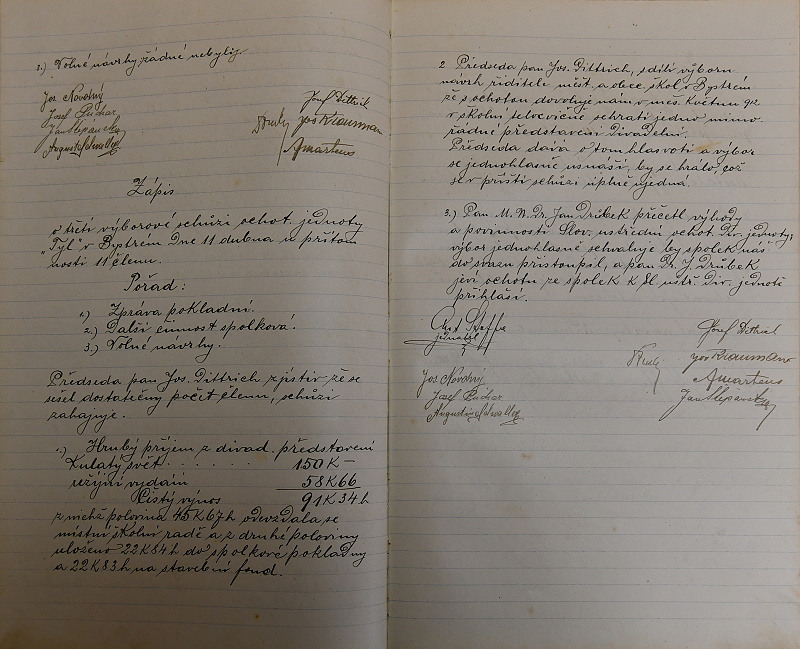 3.) Volné návrhy žádné nebyly.
Jos Novotný
Josef Puchar
Jan Stepanek
Augustin
Josef Dittrich
Jos Krausmann
AMartenus
Zápis
o třetí výborové schůzi ochot. jednoty
"Tyl" v Bystrém Dne 11 dubna u přítom
nosti 11 členu.
Pořad:
1.) Zpráva pokladní.
2.) Další činnost spolková.
3.) Volné návrhy.
Předseda pan Jos. Dittrich zjistiv že se
sešel dostatečný počet členu, schůzi
zahajuje.
1.) Hrubý příjem z divad. představení
Kulatý svět . . . . . . 150 K –
režijní vydání 58 K 66
Čistý výnos 91 K 34 h
z nichž polovina 45 K 67 h odevzdala se
místní školní radě a z druhé poloviny
uloženo 22 K 84 h do spolkové pokladny
a 22 K 83 h na stavební fond.
2 Předseda pan Jos. Dittrich, sdělil výboru
návrh řiditele měst. a obec. škol v Bystrém
že s ochotou dovoluje nám v měs. Květnu 912
v školní tělocvičně sehráti jedno mimo-
řádné představení Divadelní.
Předseda dává o tom hlasovati a výbor
se jednohlasně usnáší, by se hrálo, což
se v příští schůzi úplně ujedná.
3.) Pan M. U. Dr. Jan Drůbek přečetl výhody
a povinnosti Slov. ustřední ochot. Div. jednoty;
výbor jednohlasně schvaluje by spolek náš
do svazu přistoupil, a pan Dr. J. Drůbek
jeví ochotu že spolek k Sl. ustř. Div. jednotě
přihlásí.
jednatel
Jos Novotný
Josef Puchar
Augustin
Josef Dittrich
Jos Krausmann
AMartenus
Jan Stepanek